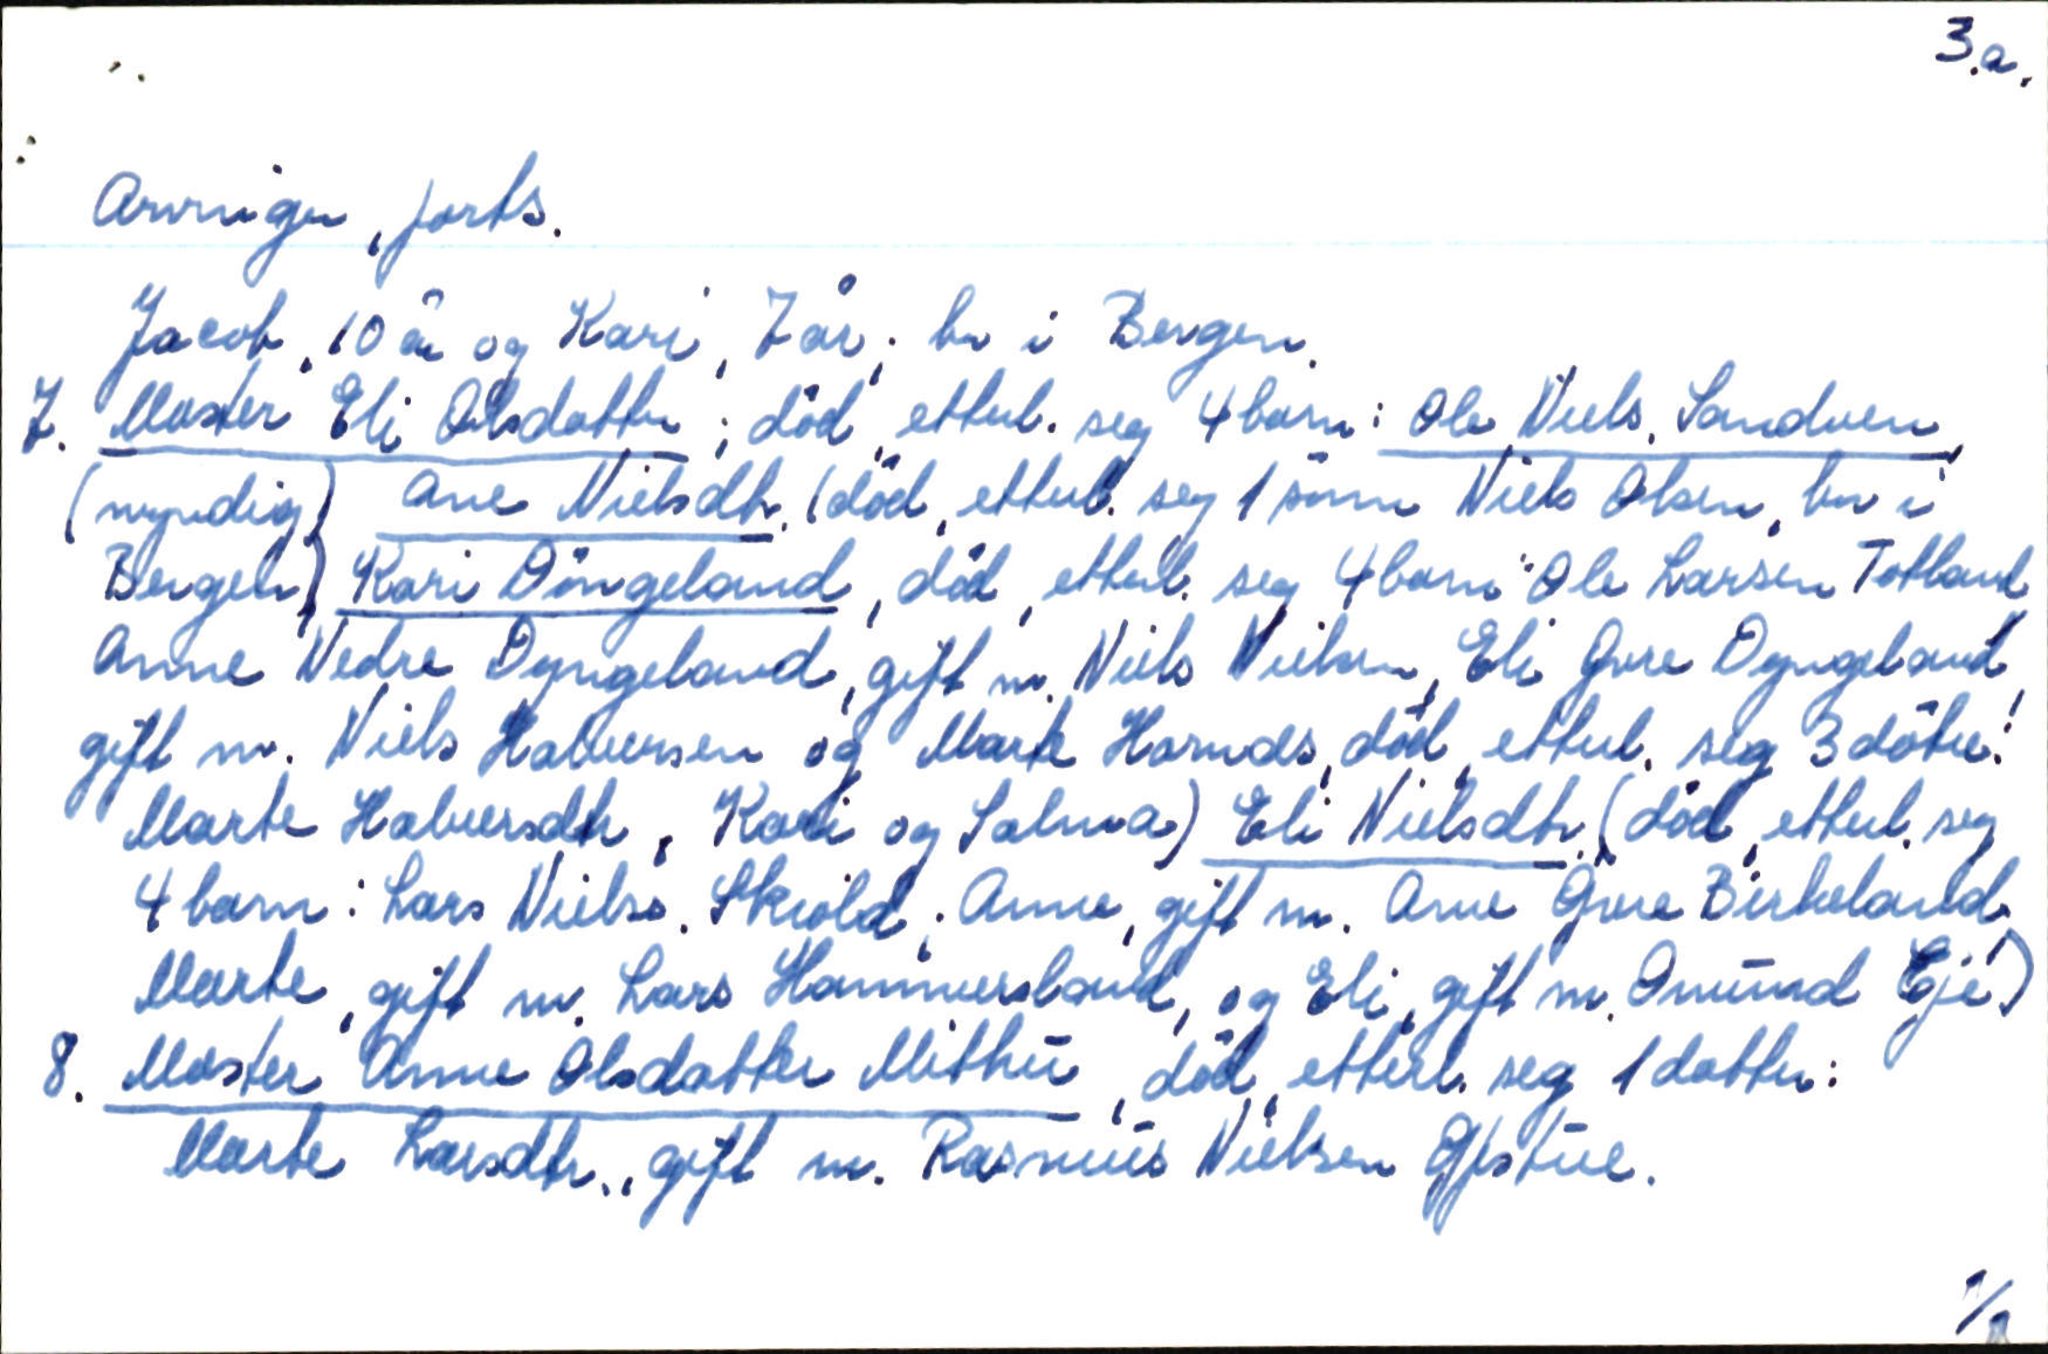 3.a.
Arvinger, forts.
Jacob, 10 år og Kari, 7 år; bor i Bergen.
7. Moster Eli Olsdatter; död, etterl. seg 4 barn: Ole Niels. Sandven,
(myndig) Ane Nielsdtr. (död, etterl. seg 1 sönn Niels Olsen, bor i
Bergen) Kari Döngeland, död, etterl. seg 4 barn: Ole Larsen Totland
Anne Nedre Dyngeland, gift m. Niels Nielsen, Eli Övre Dyngeland,
gift m. Niels Halversen og Marte Hornes, död, etterl. seg 3 dötre:
Marte Halversdtr, Kari og Salma) Eli Nielsdtr. (död, etterl. seg
4 barn: Lars Nielss. Skiold; Anne, gift m. Arne Övre Birkeland,
Marte, gift m. Lars Hammersland, og Eli, gift m. Omund Eje)
8. Moster Anne Olsdatter Mithū, död, etterl. seg 1 datter:
Marte Larsdtr., gift m. Rasmūs Nielsen